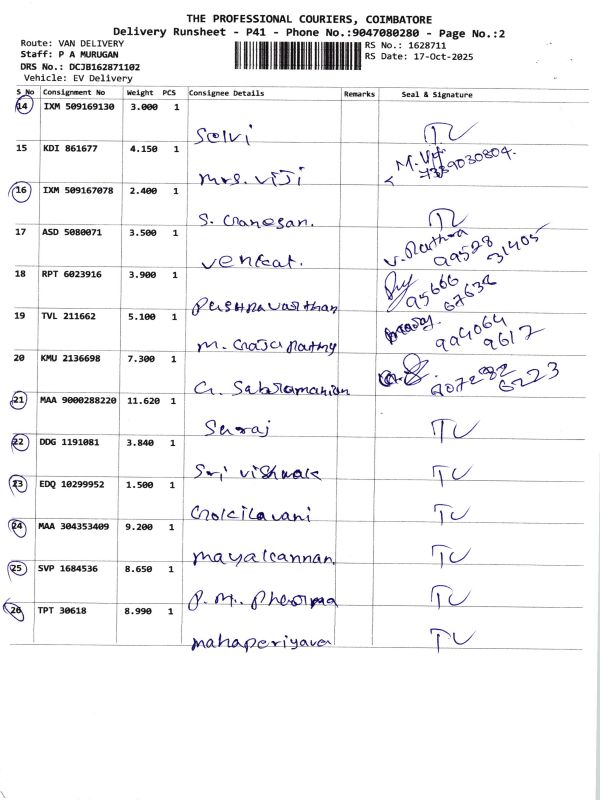 THE PROFESSIONAL COURIERS, COIMBATORE
Delivery Runsheet - P41 - Phone No.:9047080280 - Page No.:2
Route: VAN DELIVERY
Staff: P A MURUGAN
DRS No.: DCJB162871102
Vehicle: EV Delivery
RS No.: 1628711
RS Date: 17-Oct-2025
S_No Consignment No Weight PCS Consignee Details Remarks Seal & Signature
14 IXM 509169130 3.000 1
Selvi
15 KDI 861677 4.150 1
M. Viji
7339030804.
Mrs. Viji
16 IXM 509167078 2.400 1
S. Ganesan.
17 ASD 5080071 3.500 1
99528
31405
Venkat.
18 RPT 6023916 3.900 1
95666
67636
19 TVL 211662 5.100 1
994064
9617
M.
20 KMU 2136698 7.300 1
G. Sabramanian
6223
21 MAA 9000288220 11.620 1
Suraj
22 DDG 1191081 3.840 1
Sri
23 EDQ 10299952 1.500 1
Gokilavani
24 MAA 304353409 9.200 1
Mayakannan.
25 SVP 1684536 8.650 1
P. M. Pharma
26 TPT 30618 8.990 1
Mahaperiyava